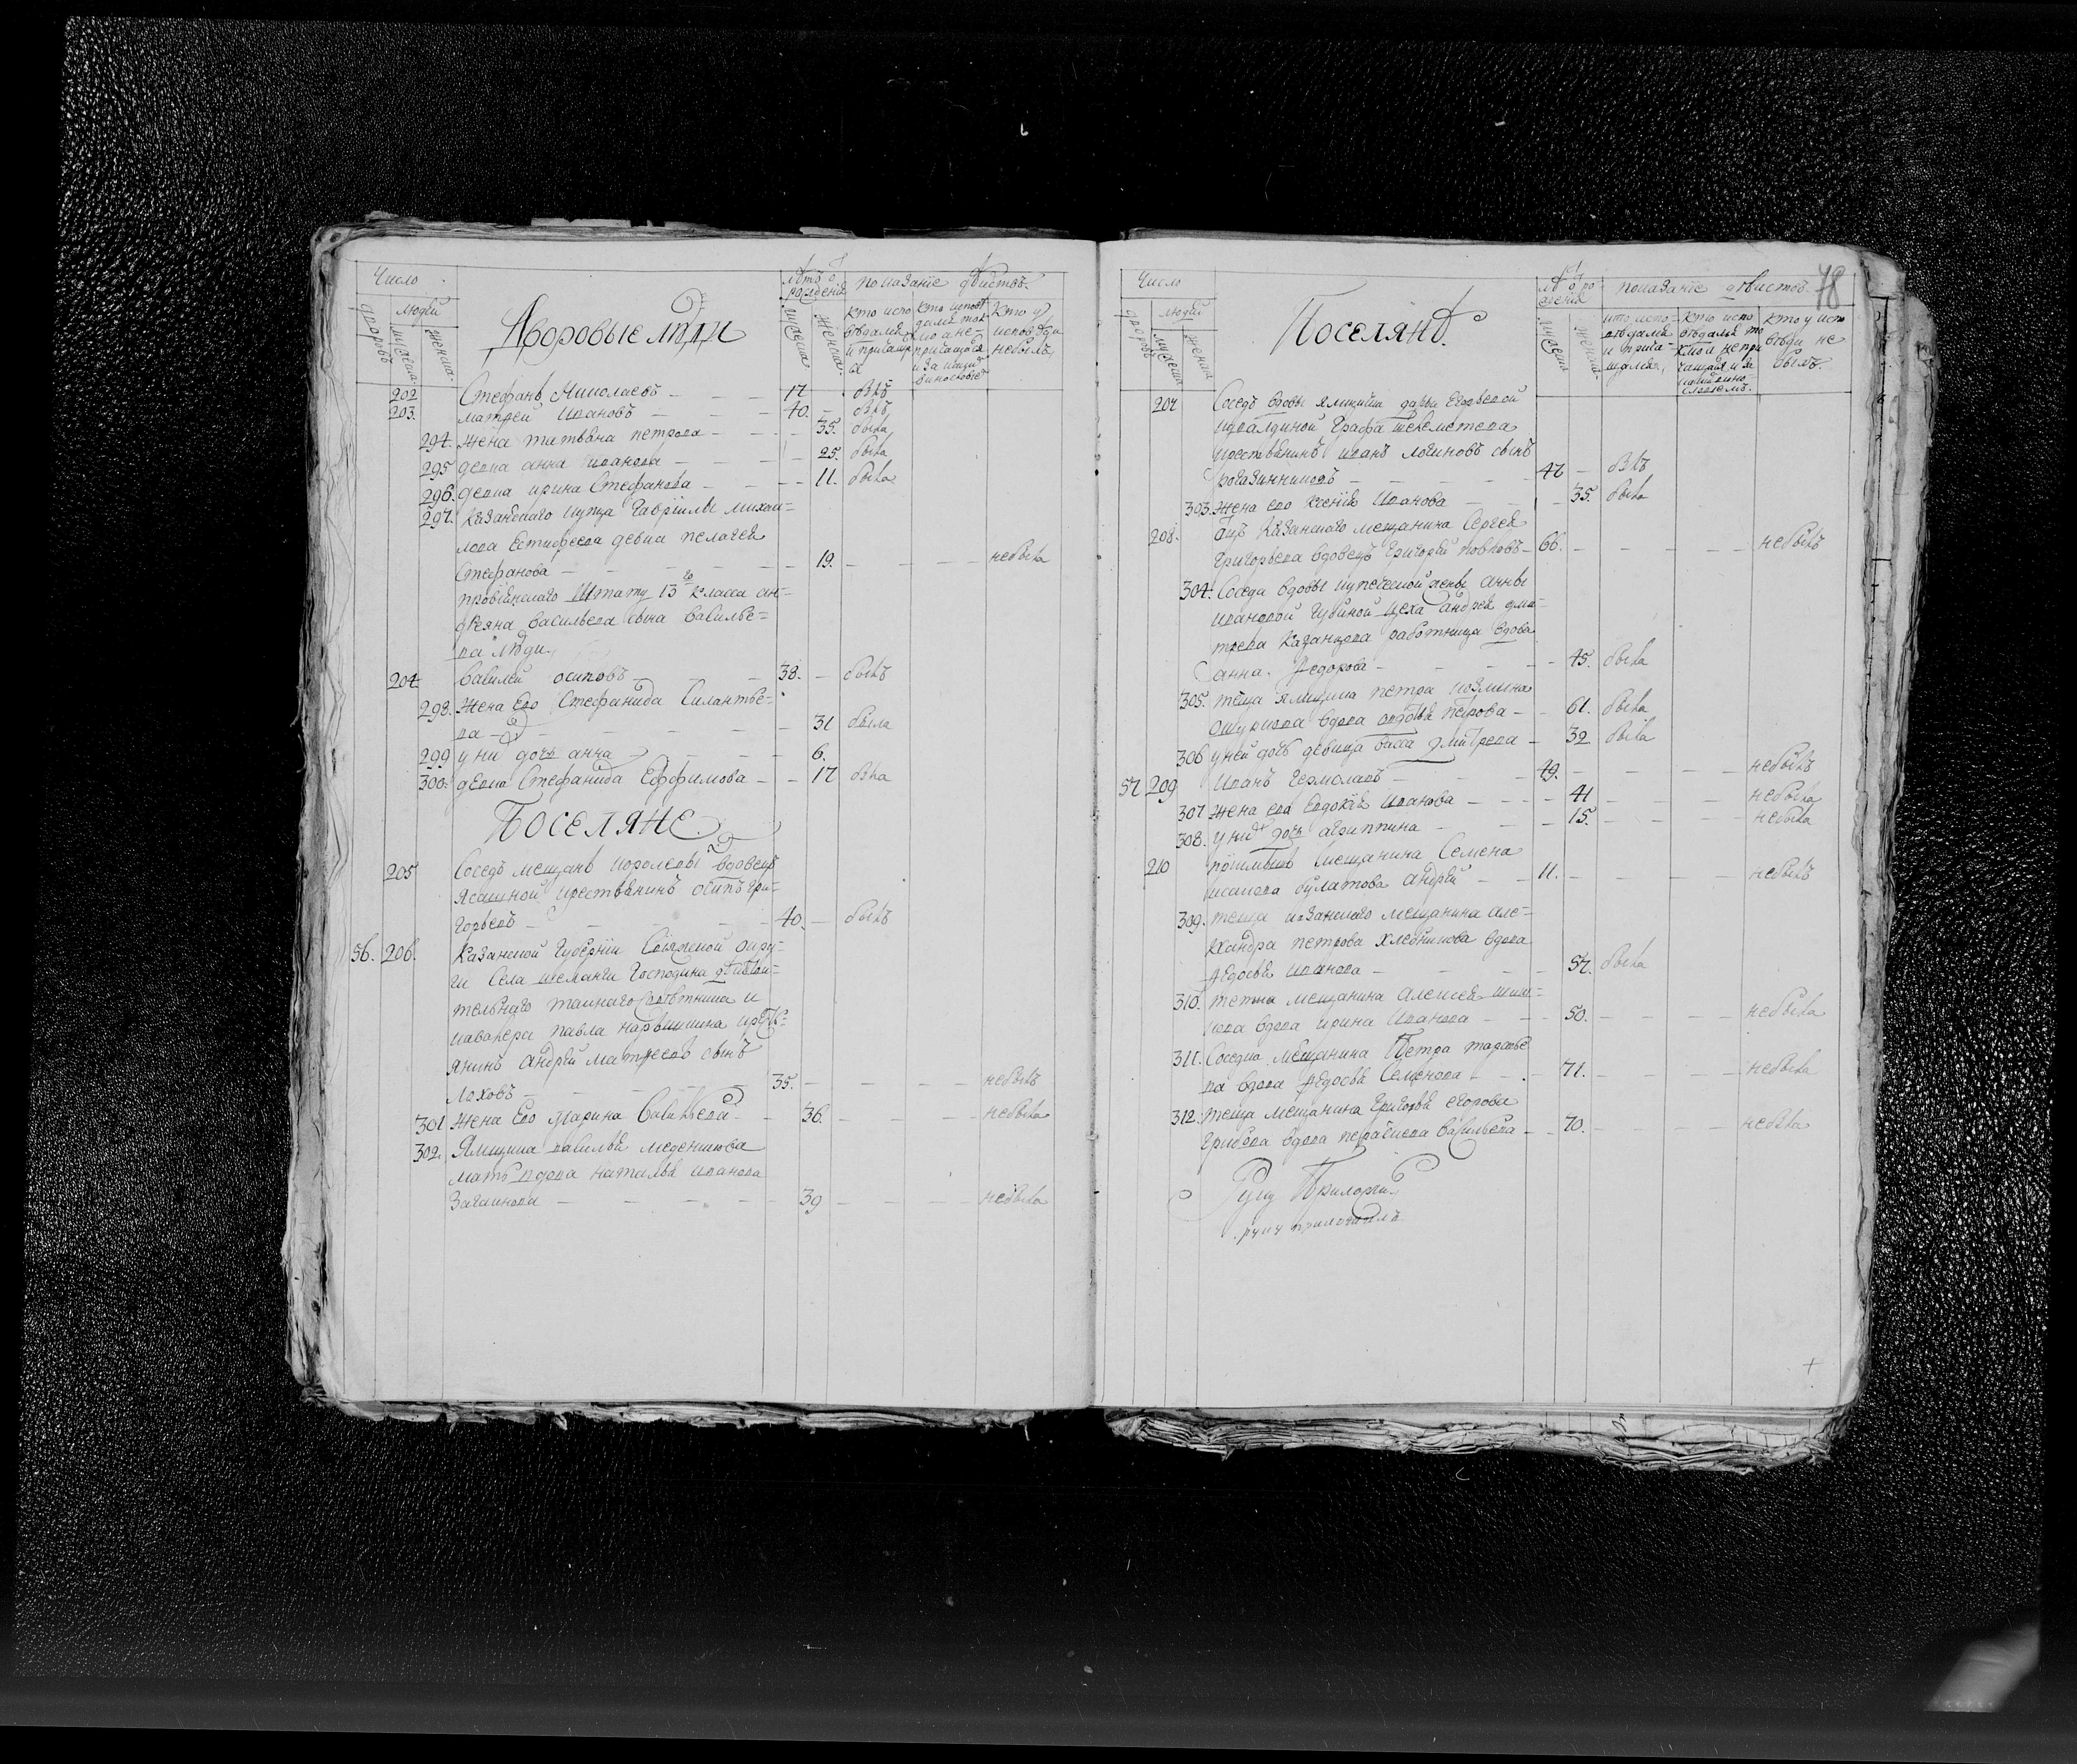 Число
людей
дворовъ
мужеска.
женска.
Дворовые люди
лѣтъ от рождения
мужеска
женска.
показание действъ.
кто испо
ведался
и причащал
ся
кто испове
дался ток
мо а не
причащался
и за какой
виною
кто у
исповеди
небылъ
202 Стефанъ Николаевъ 17 бывъ
203. матвей ивановъ 40. бывъ
294. жена татьяна петрова 35. была
295 девка анна иванова 25. была
296. девка ирина Стефанова 11. была
297. казанскаго купца Гавриилы михаи=
лова Евтифеева девка пелагея
Стефанова 19. небыла
провиянскаго Штату 13го класса ан=
дреяна васильева сына васильe=
ва люди.
204 василей осиповъ 38. былъ
298. жена Его Стефанида Силантье=
ва 31 была
299 у них дочь анна 6.
300. девка Стефанида Еффимова 17 была
ПОСЕЛЯНЕ.
205 Соседъ мещанъ королевы вдовецъ
Ясашной крестьянинъ осипъ гри=
горьевъ 40. былъ
56. 206. Казанской Губернии Свияжской окру=
ги Села шеланги Господина действи=
тельнаго тайнаго Советника и
кавалера павла нарышкина крестья=
янинъ андрей матвеевъ сынъ
Лоховъ 35. небылъ
301 жена Его марина васильева 36. небыла
302. Ямщика василья меденикова
мать вдова наталья иванова
39 небыла
78
Число
людей
дворовъ
мужеска
женска
ПОСЕЛЯНЪ.
лѣтъ от ро
ждения
мужеска
женска.
показание действъ.
кто испо=
ведался
и прича=
щался,
кто испо
ведался то
кмо и не при
чащался и за
кто у испо
веди не
былъ.
207 Соседъ вдовы ямщички дарьи Егорьевой
графа шереметева
крестьянинъ иванъ логиновъ сынъ
47 былъ
303. жена его ксения иванова 35. была
208. отцъ казанскаго мещанина Сергея
Григорьева вдовецъ Григорий 66. небылъ
304. Соседа вдовы купеческой жены анны
ивановой Губиной цеха андрея дми=
триева казанцева работница вдова
анна Федорова 45. была
305. теща ямщика петра козмина
вдова авдотья петрова 61. была
306 у ней дочь девица васса дмитрева 32 была
57 209 Иванъ Ермолаевъ 49. небылъ
307 жена его Евдокия иванова 41 небыла
308. у них дочь агриппина 15. небыла
210 приимышъ мещанина Семена
исакова булатова андрей 11. небылъ
309. теща казанскаго мещанина але=
ксандра петрова хлебникова вдова
федосья иванова 57. была
310. тетка мещанина алексея шиш=
кова вдова ирина иванова 50. небыла
311. Соседка мещанина Петра тарасье
ва вдова федосья Семенова 71. небыла
312. теща мещанина григорья егорова
грибова вдова васильева 70. небыла
Руку Приложи
руку приложилъ